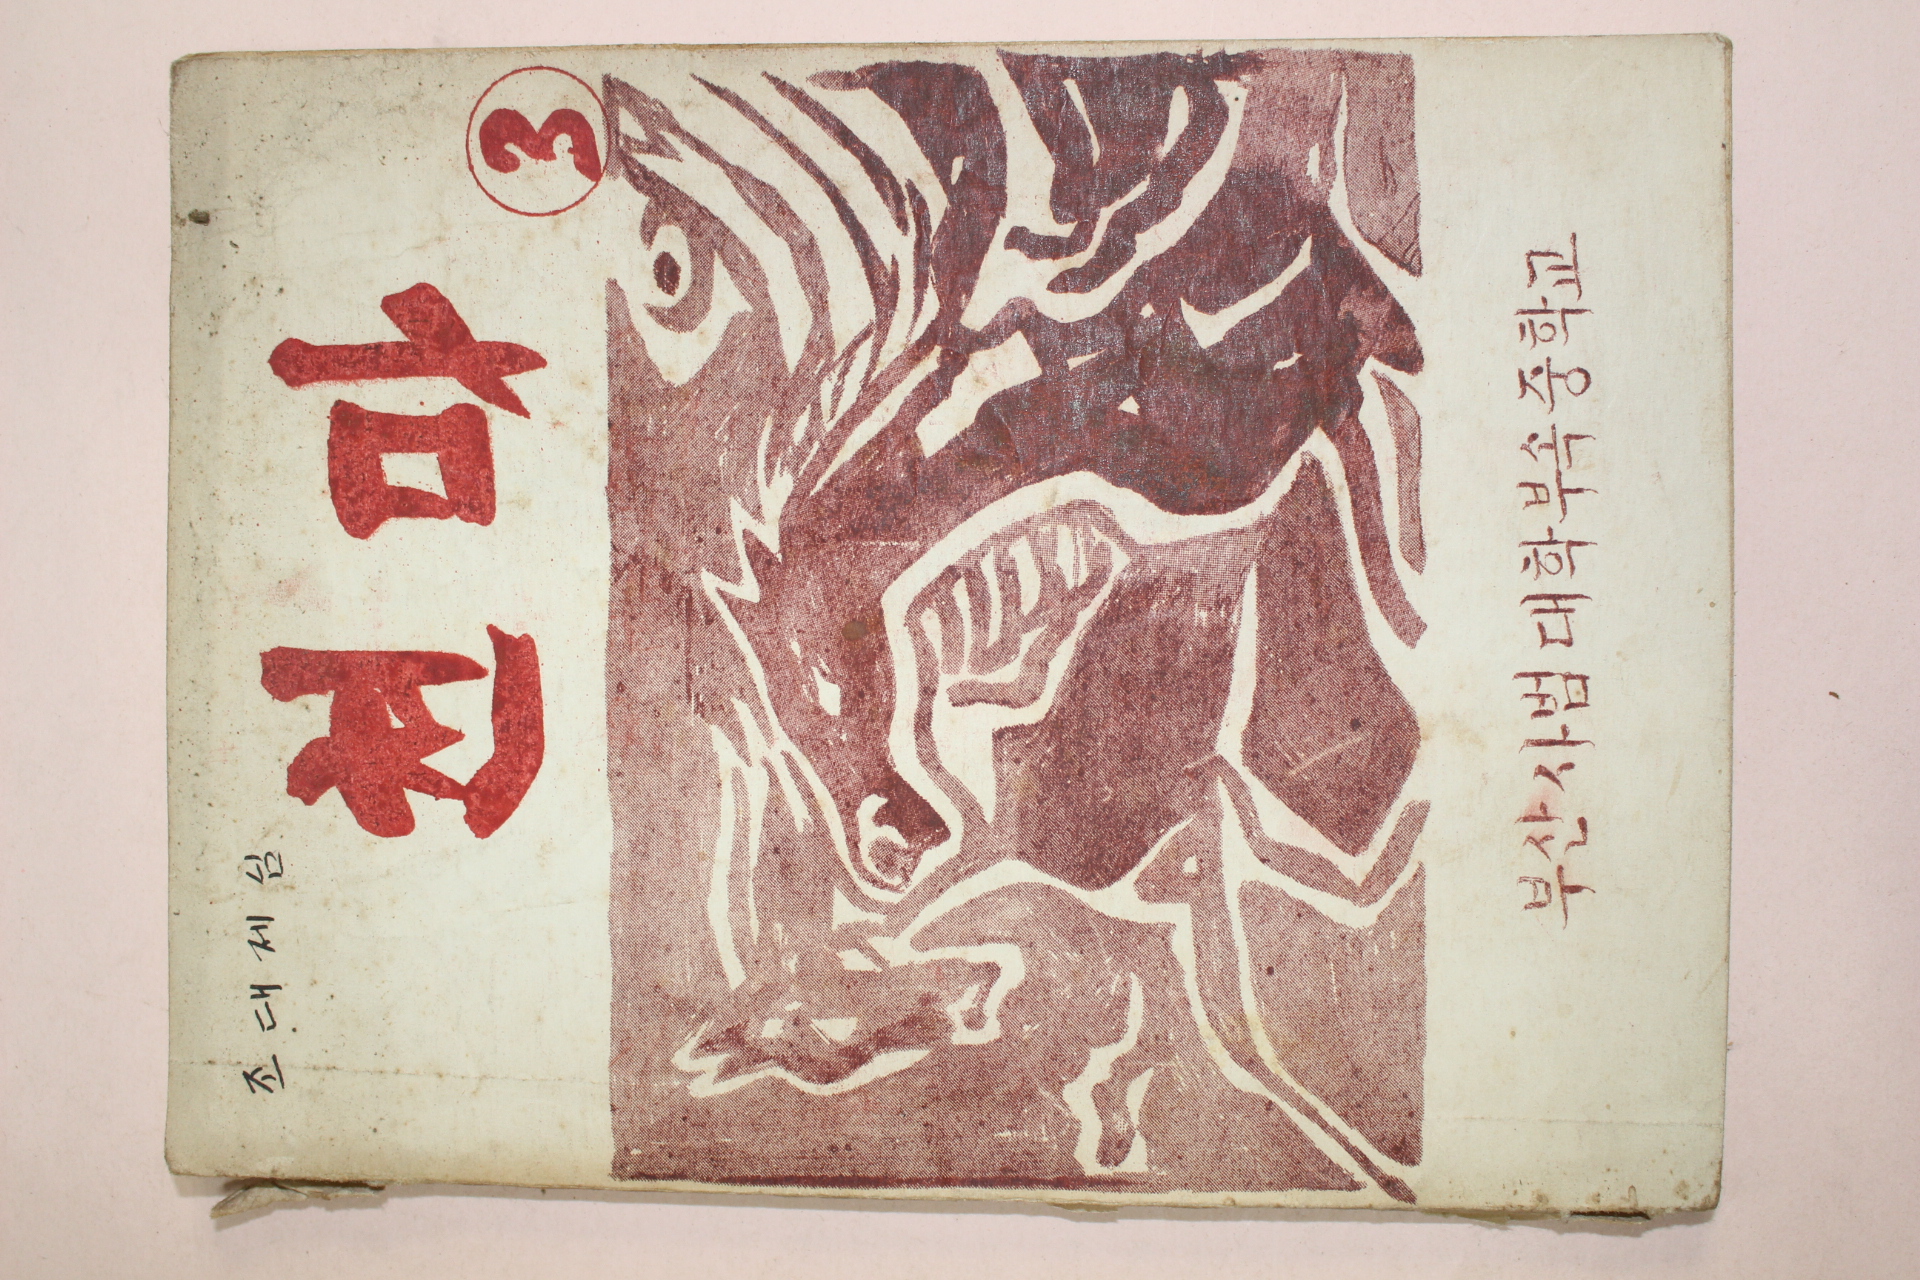 조 대 제 심
천마 3
부산사범대학부속중학교